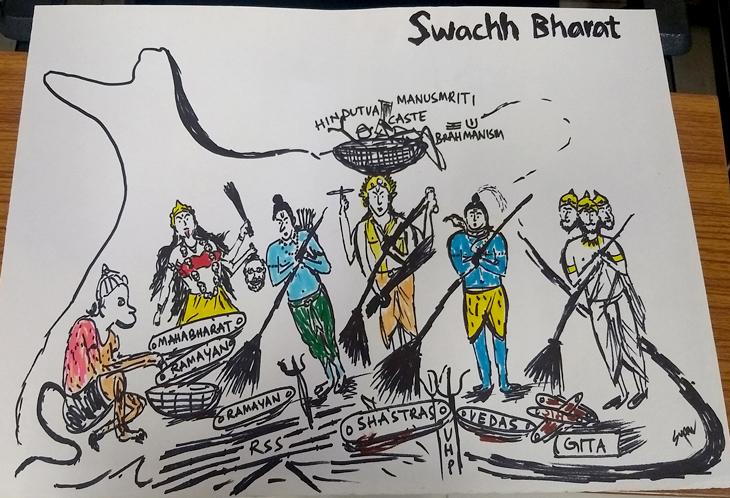 Swachh Bharat
HINDUTVA
MANUSMRITI
CASTE
BRAHMANISM
MAHABHARAT
RAMAYAN
RAMAYAN
RSS
SHASTRAS
VHP
VEDAS
GITA